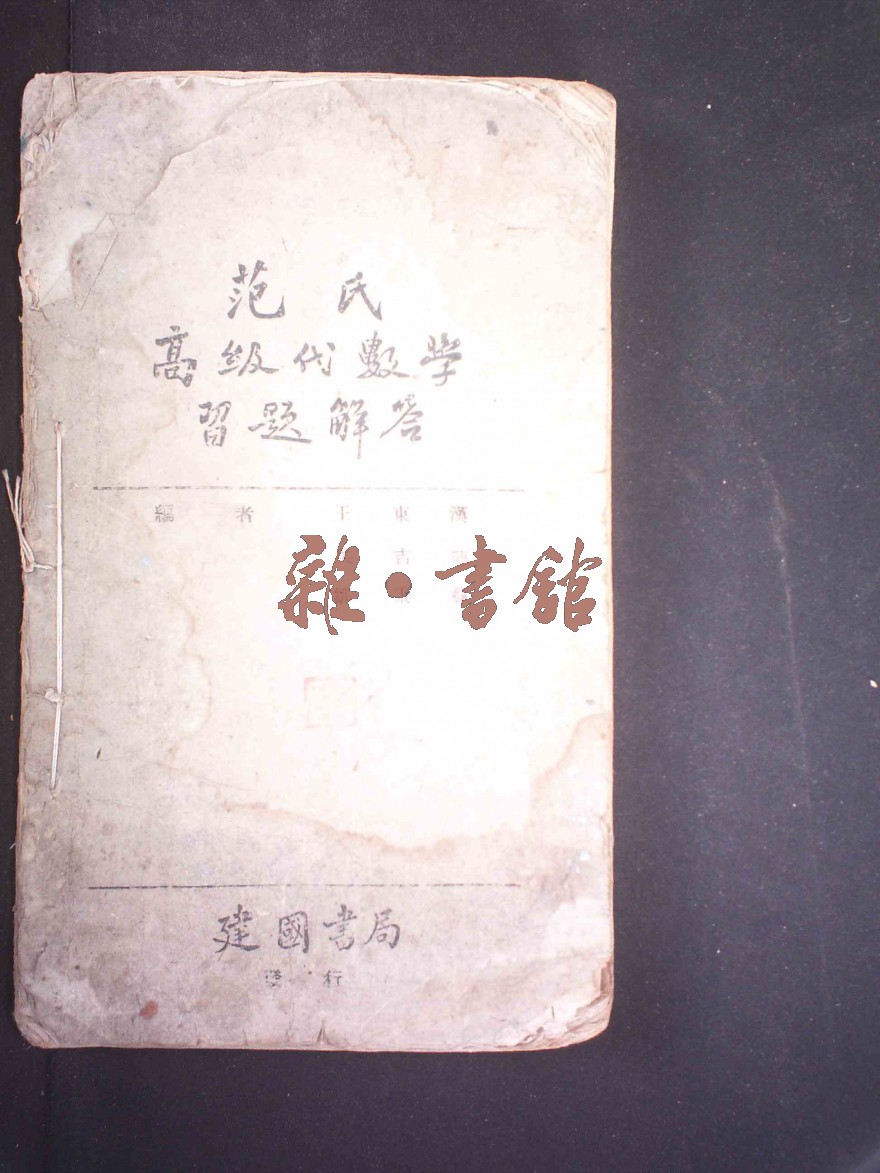 范氏
高級代數學
習題解答
編者 王東漢
吉
雜•書館
建國書局
發行